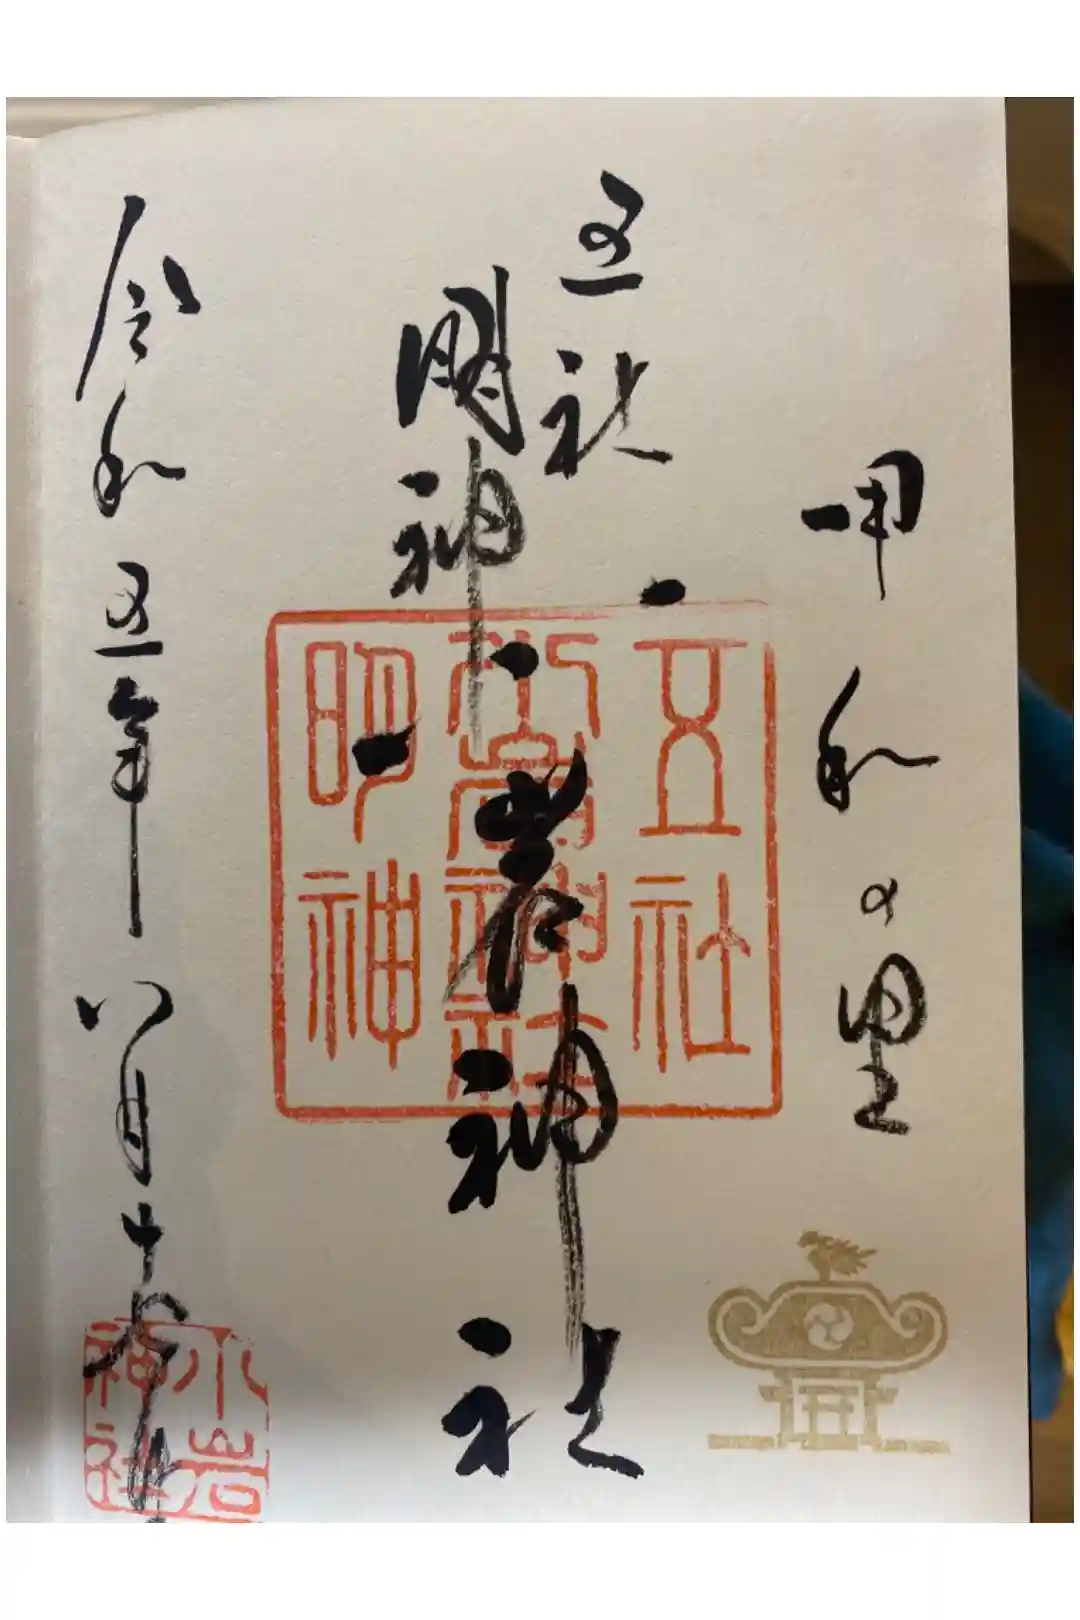 甲和の里
五社
明神
小岩神社
令和五年八月十
五社
小岩神社
明神
小岩
神社